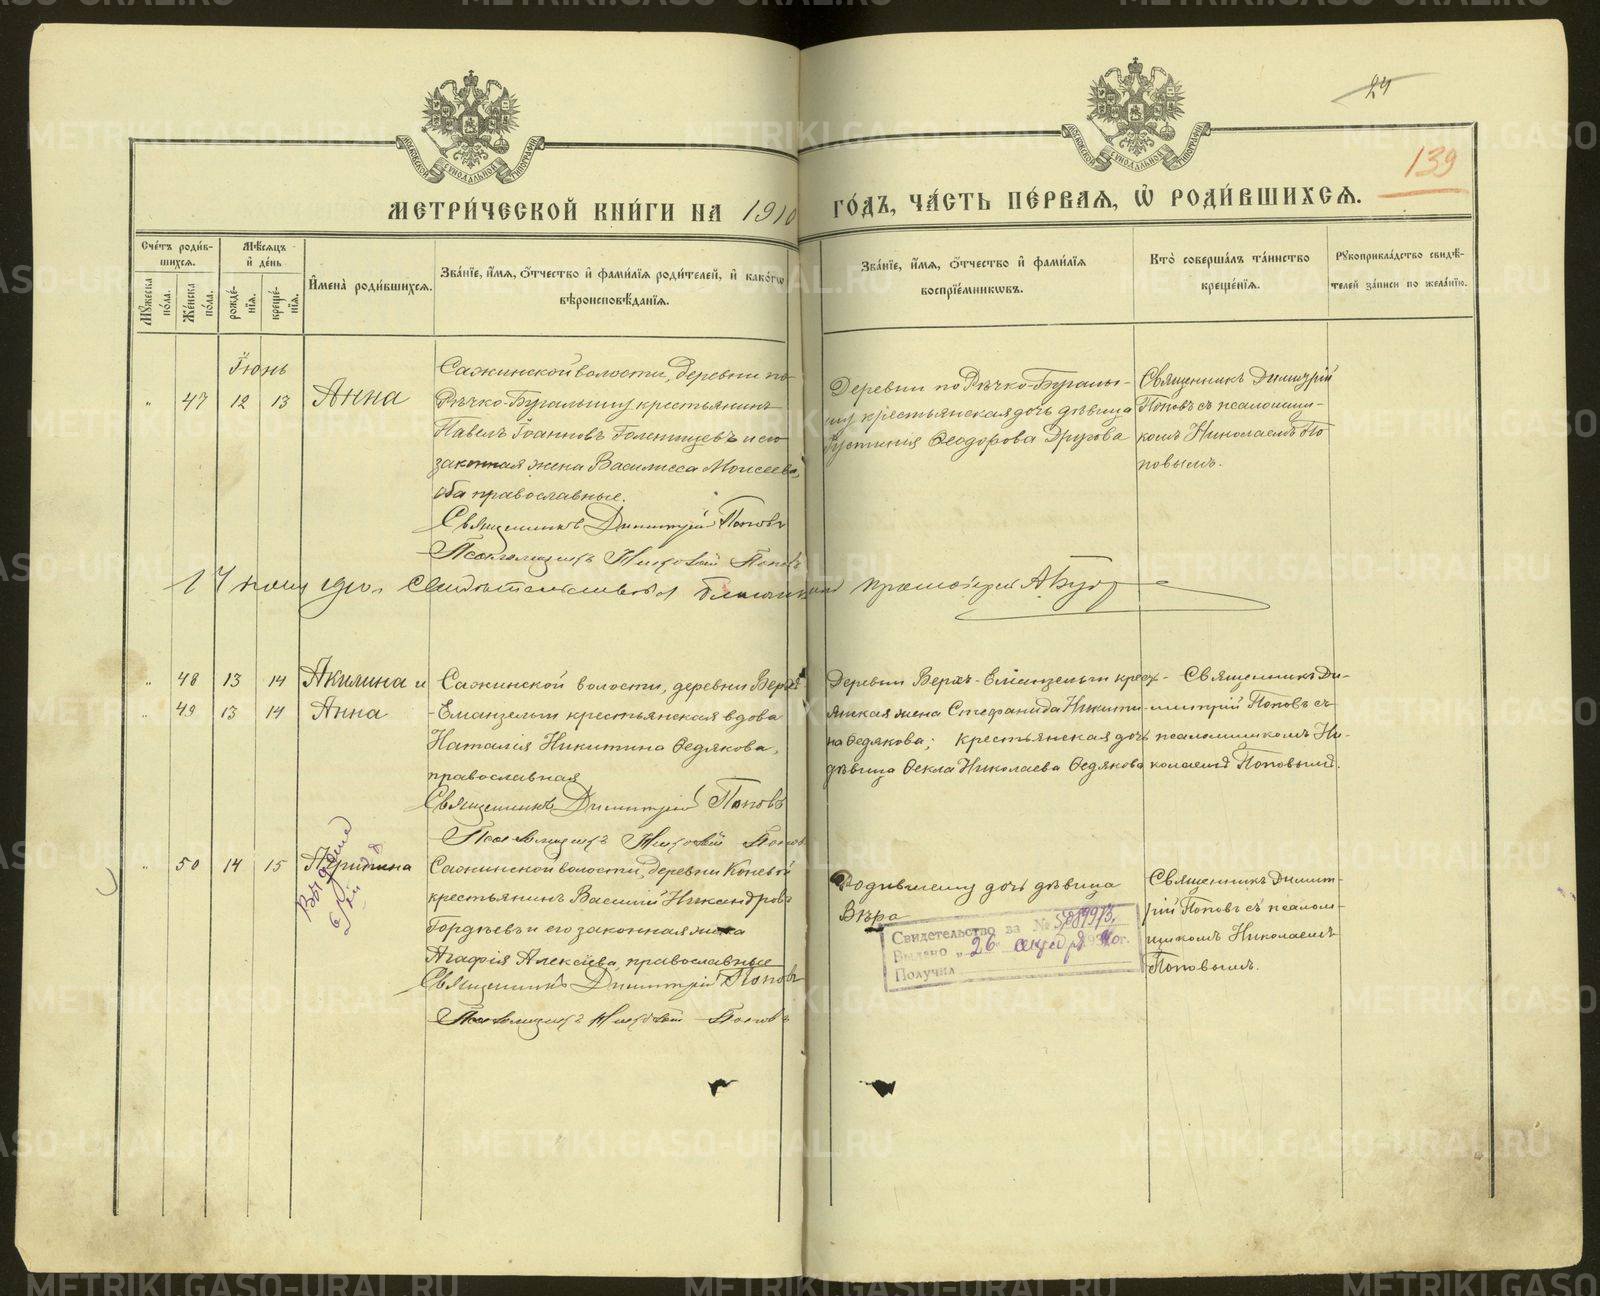 24
139
МЕТРИ́ЧЕСКОЙ КНИ́ГИ НА 1910 ГО́ДЪ, ЧА́СТЬ ПЕ́РВАЯ, Ѡ РОДИ́ВШИХСЯ.
Сче́тъ роди́вшихся.
Мꙋ́жеска по́ла.
Же́нска по́ла.
Мѣ́сяцъ и де́нь
рожде́нїя.
креще́нїя.
И҆мена̀ роди́вшихся.
Зва́нїе, и҆́мя, ѻ҆́тчество и҆ фами́лїя роди́телей, и҆ како́гѡ
вѣроисповѣ́данїя.
Зва́нїе, и҆́мя, ѻ҆́тчество и҆ фами́лїя
воспрїе́мникѡвъ.
Кто̀ соверша́лъ та́инство
креще́нїя.
Рꙋкоприкла́дство свидѣ́-
телей за́писи по жела́нїю.
Іюнь
„ 47 12 13 Анна
Сажинской волости, деревни по
Рѣчко-Бугалышу крестьянинъ
Павелъ Іоанновъ Голенищевъ и его
законная жена Василисса Моисеева,
оба православные.
Священникъ Димитрій Поповъ
Псаломщикъ Николай Поповъ
Деревни по Рѣчко-Бугалы-
шу крестьянская дочь дѣвица
Іустинія Ѳеодорова
Священникъ Димитрій
Поповъ съ псаломщи-
комъ Николаемъ По
повымъ.
1910. протоіерей А.
„ 48 13 14 Акилина и
„ 49 13 14 Анна
Сажинской волости, деревни Верхъ
-Еманзельги крестьянская вдова
Наталія Никитина Ѳедякова,
православная
Священникъ Димитрій Поповъ
Псаломщикъ Николай Поповъ
Деревни Верхъ-Еманзельги крест-
янская жена Стефанида Никити-
на Ѳедякова; крестьянская дочь
дѣвица Ѳекла Николаева Ѳедякова
Священникъ Ди-
митрій Поповъ съ
псаломщикомъ Ни-
колаемъ Поповымъ.
„ 50 14 15
Сажинской волости, деревни Коневой
крестьянинъ Василій Никандровъ
Гордѣевъ и его законная жена
Агафія Алексѣева, православные
Священникъ Димитрій Поповъ
Псаломщикъ Николай Поповъ
Родившему дочь дѣвица
Вѣра
Свидетельство за №
Выдано „26“
Получил
Священникъ Димит-
рій Поповъ съ псалом-
щикомъ Николаемъ
Поповымъ.
METRIKI.GASO-URAL.RU